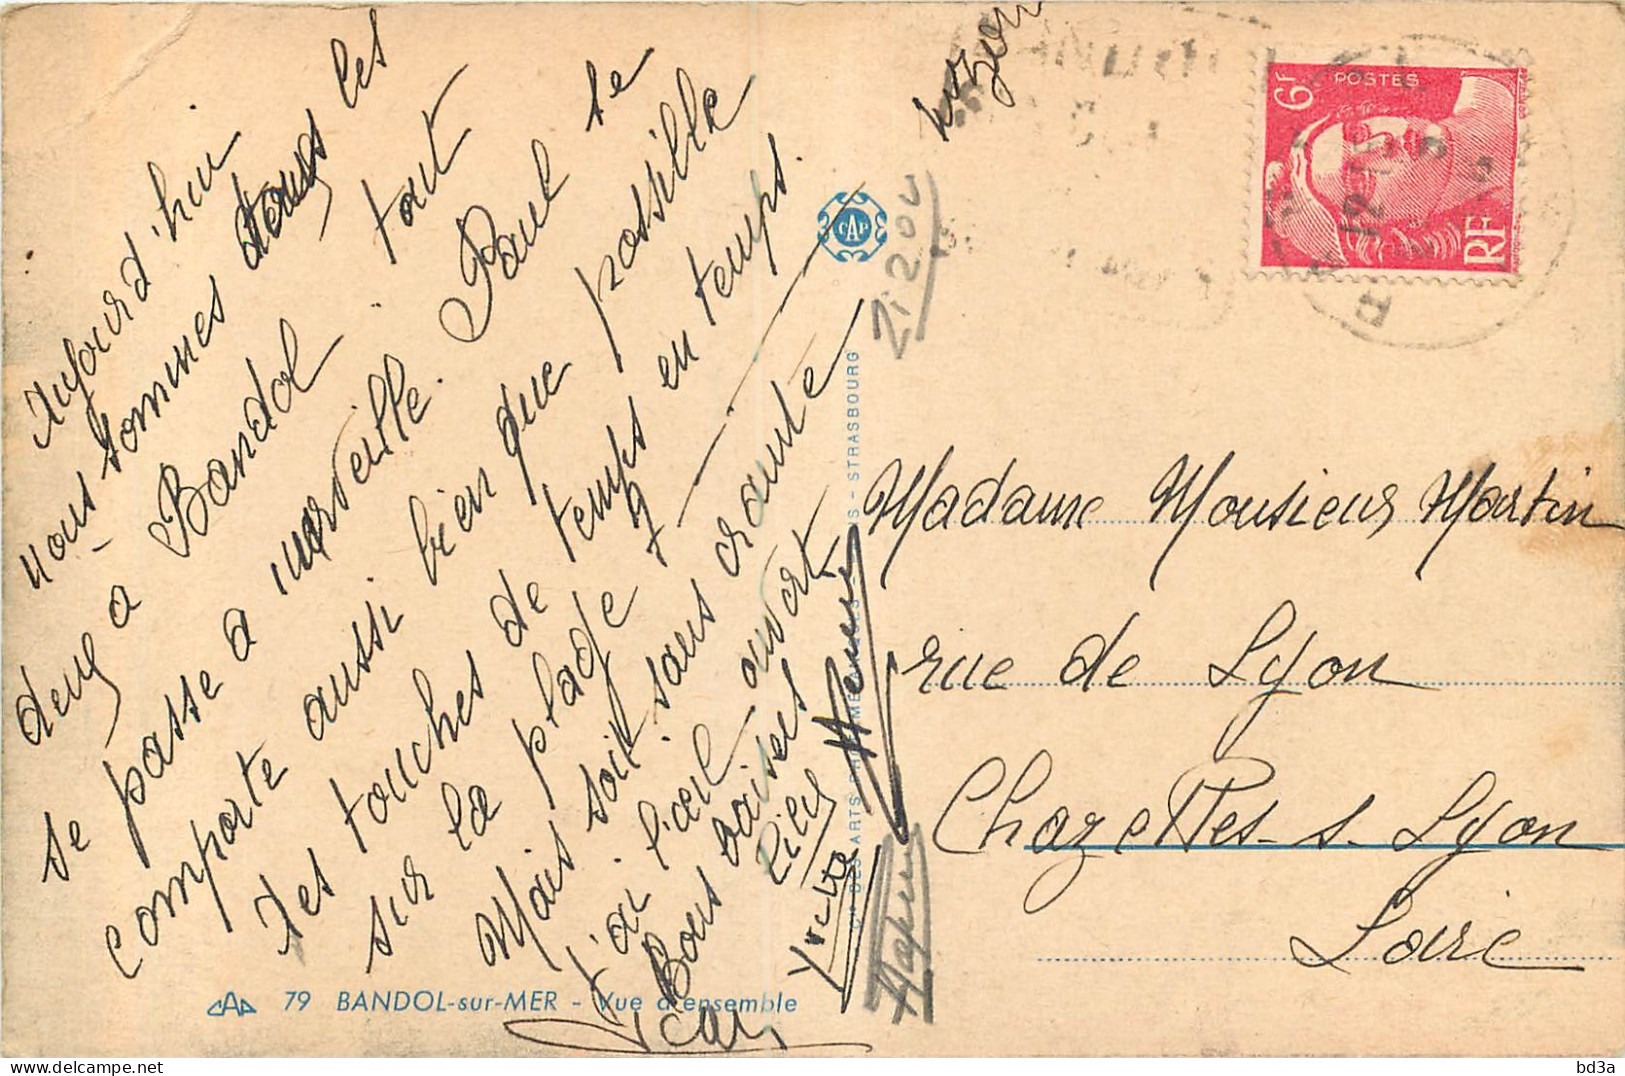 Aujourd'hui
nous sommes tous les
deux a Bandol. tout
se passe a merveille. Paul se
comporte aussi bien que possible
Des touches de temps en temps.
sur la plage
Mais soit sans crainte
j'ai l'œil ouvert
Bons baisers
Lily
Yvette
Jean
CAP
79 BANDOL-sur-MER - Vue d'ensemble
STRASBOURG
6F
POSTES
RF
Madame Monsieur Martin
rue de Lyon
Chazelles-s-Lyon
Loire
bd3a